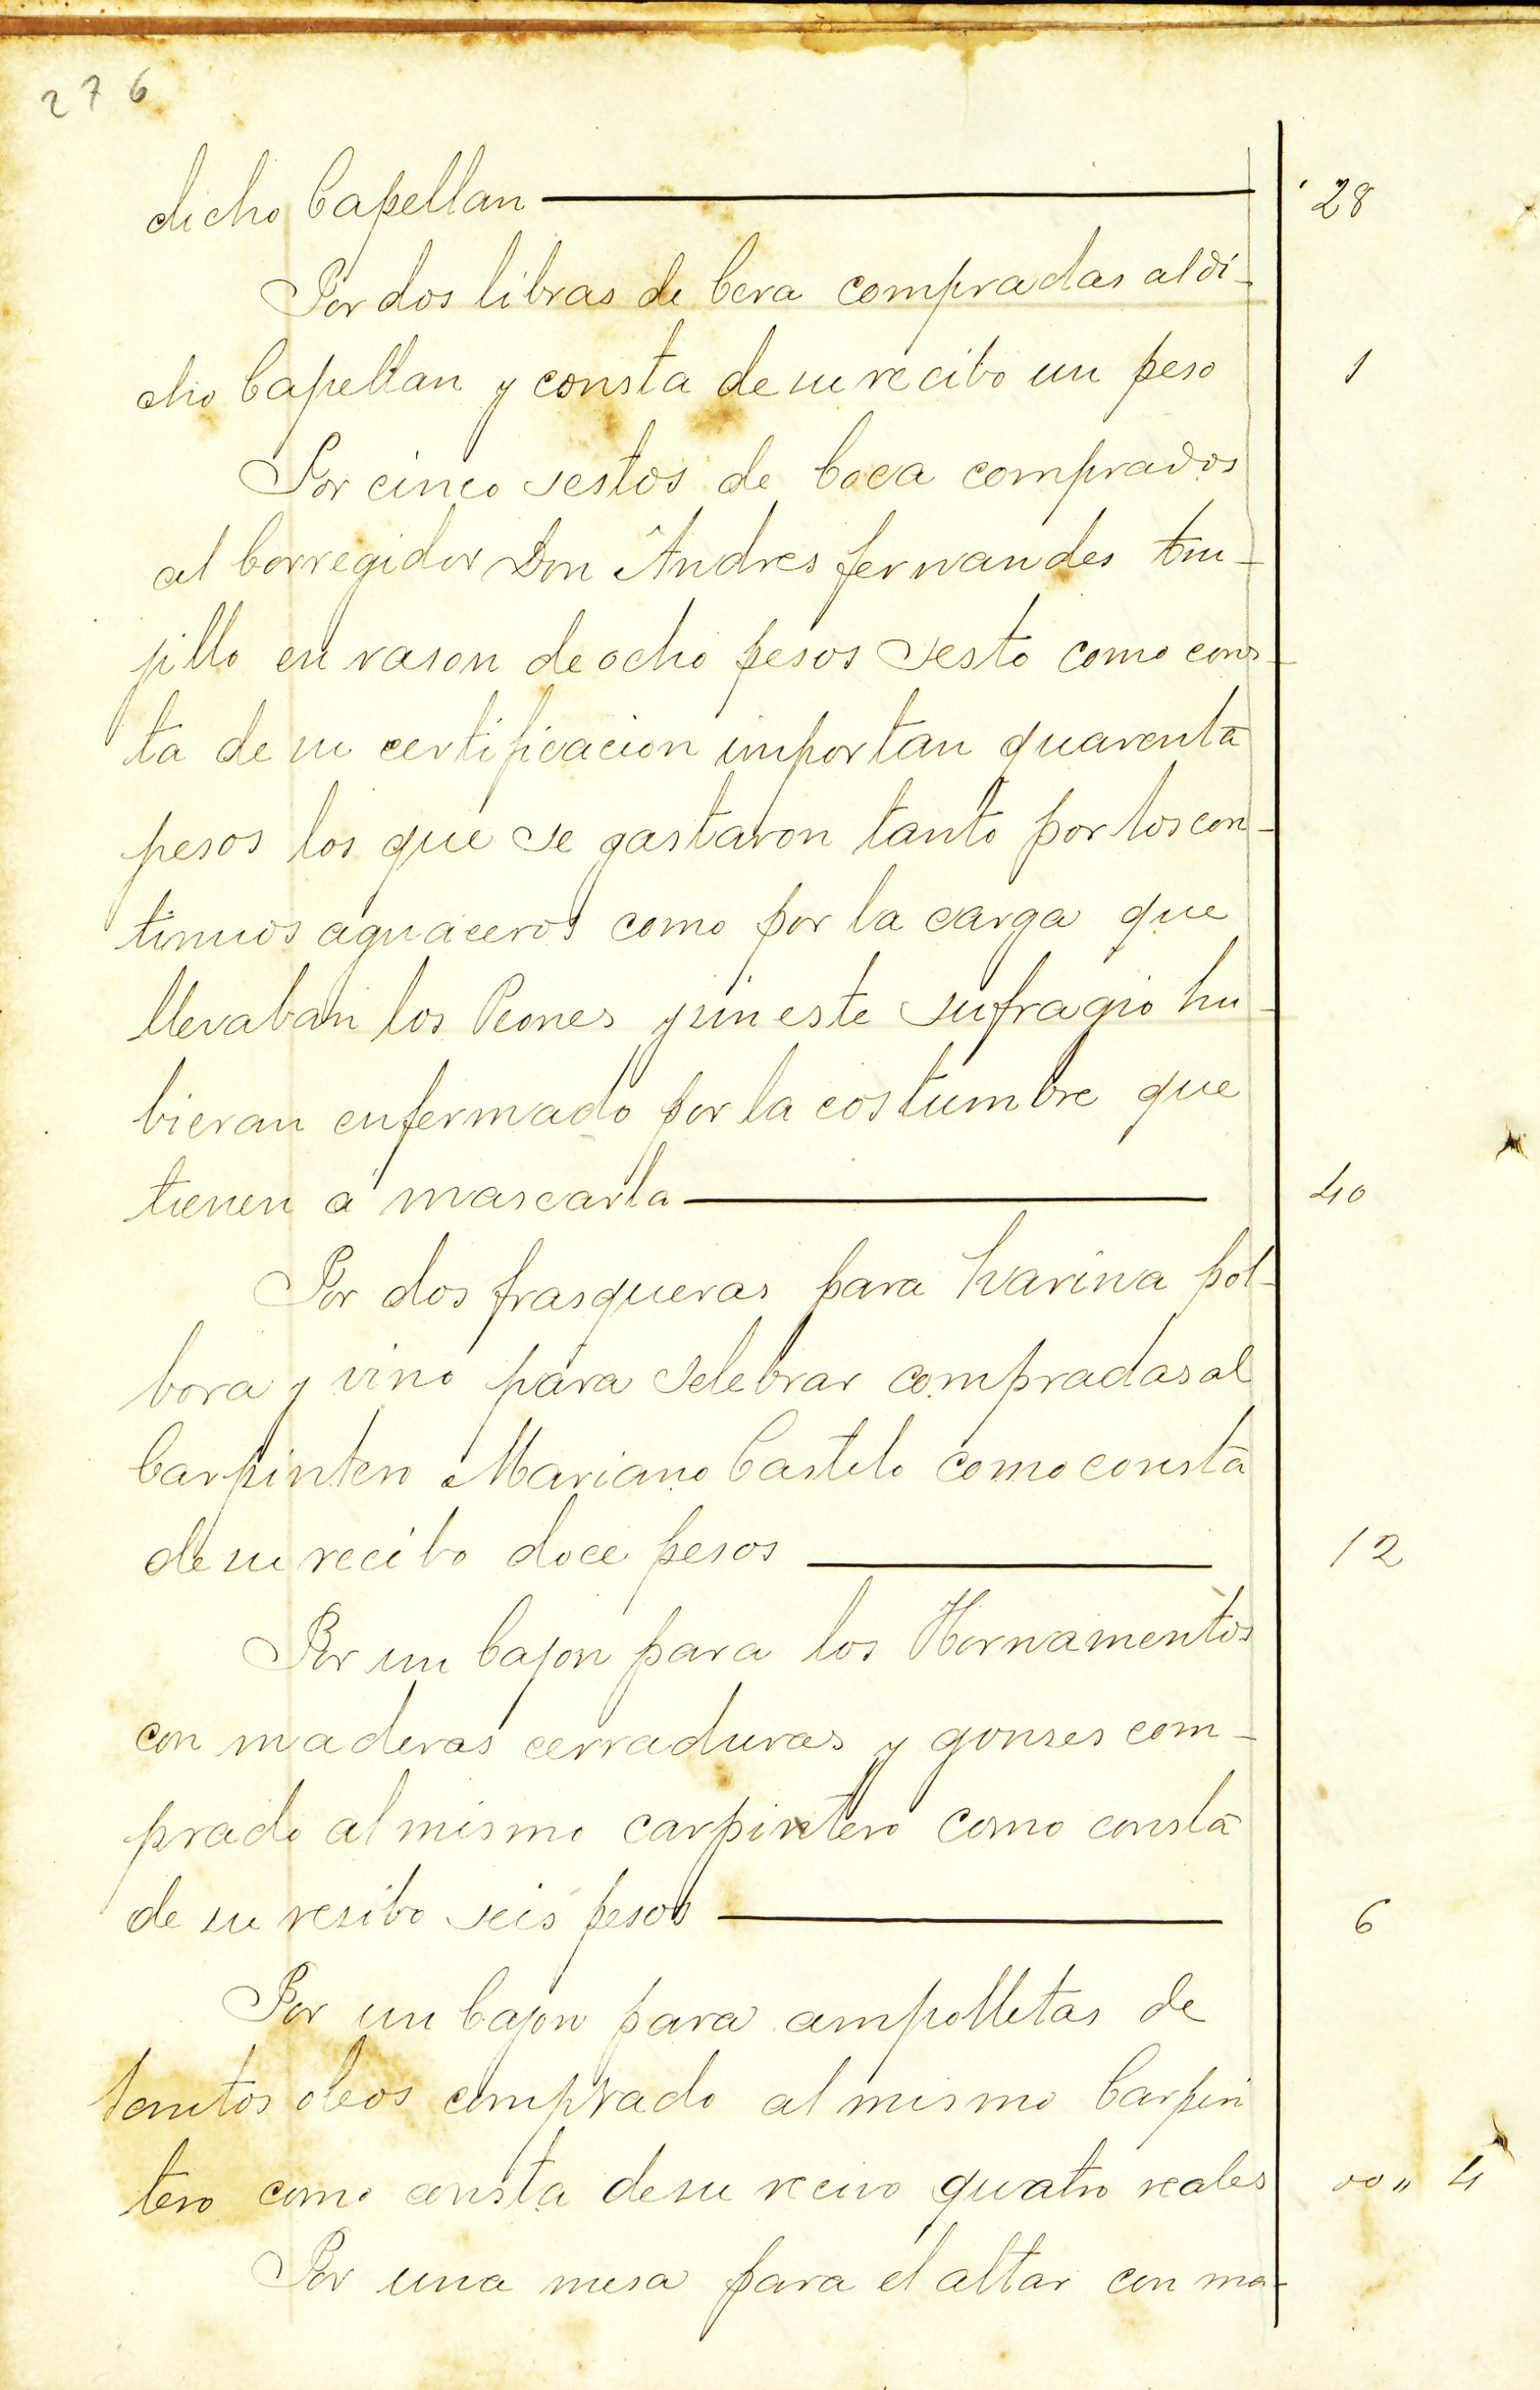 276
dicho Capellan 28
Por dos libras de Cera compradas al di-
cho Capellan y consta de su recibo un peso 1
Por cinco sestos de Coca comprados
al Corregidor Don Andres fernandes tru-
jillo en rason de ocho pesos sesto como cons-
ta de su certificacion importan quarenta
pesos los que se gastaron tanto por los con-
tinuos aguaceros como por la carga que
llevaban los Peones y sin este sufragio hu-
bieran enfermado por la costumbre que
tienen á mascarla 40
Por dos frasqueras para harina pol-
bora y vino para selebrar compradas al
Carpintero Mariano Castelo como consta
de su recibo doce pesos 12
Por un Cajon para los Hornamentos
con maderas cerraduras y gonses com-
prado al mismo carpintero como consta
de su resibo seis pesos 6
Por un Cajon para ampolletas de
santos oleos comprado al mismo Carpin
tero como consta de su recivo quatro reales 00 " 4
Por una mesa para el altar con ma-